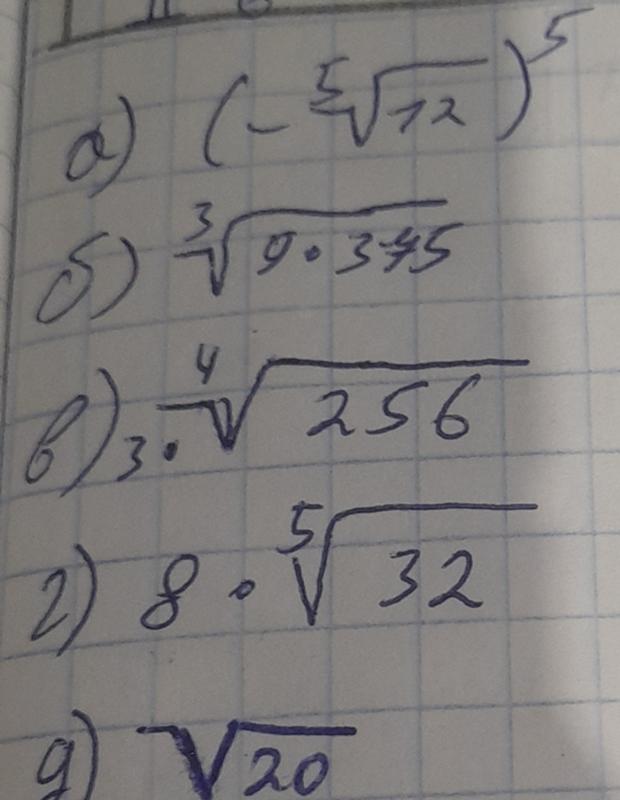 а) (-⁵√12)⁵
б) ³√9·375
в) 3·⁴√256
г) 8·⁵√32
д) √20